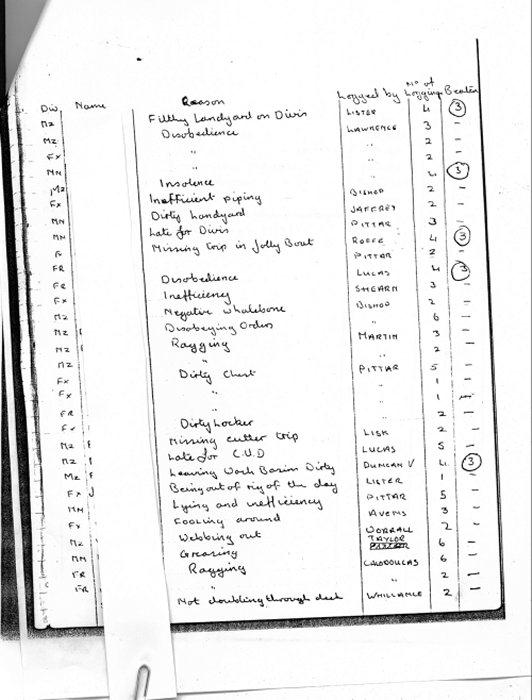 Div. Name Reason Logged by No of Loggings Beaten
Mz Filthy Landyard on Divis LISTER 4 3
Mz Disobedience LAWRENCE 3 -
Fx " " 2 -
MN " " 2 -
Mz Insolence " 4 3
Fx Inefficient piping BISHOP 2 -
MN Dirty Landyard JAFFREY 2 -
MN Late for Divis PITTAR 3 -
Fx Missing trip in Jolly Boat ROFFE 4 3
FR PITTAR 2 -
FR Disobedience LUCAS 4 3
Fx Inefficiency SHEARN 3 -
Mz Negative Whalebone BISHOP 2 -
Mz Disobeying Orders " 6 -
Mz Ragging MARTIN 3 -
Mz " " 2 -
Fx Dirty Chest PITTAR 5 -
Fx " 1 -
FR " 1 -
Fx Dirty Locker " 2 -
Mz Missing cutter trip LISK 2 -
Mz Late for C.U.D LUCAS 5 -
Mz Leaving Wash Basin Dirty DUNCAN V 4 3
Fx J Being out of rig of the day LISTER 1 -
MN Lying and inefficiency PITTAR 5 -
Fx Fooling around AVENS 3 -
Mz Webbing out WORRALL 2 -
MN Greasing TAYLOR 6 -
FR Ragging CALODOUCAS 6 -
FR " " 2 -
Not doubling through deck WHILLANCE 2 -